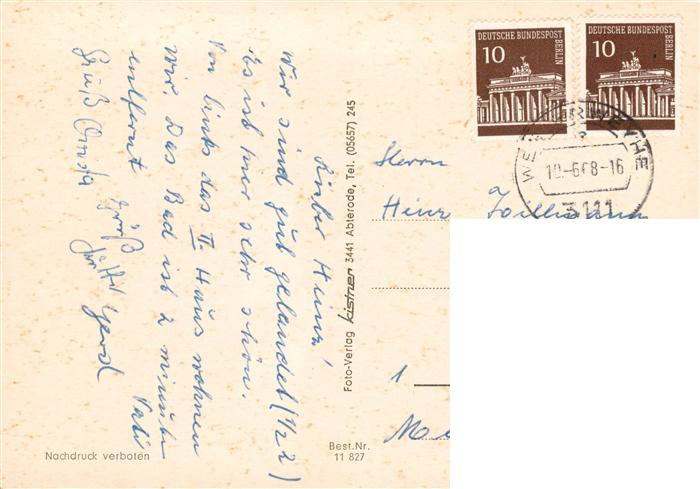 Lieber Heinz!
Wir sind gut gelandet (1/2 2)
Es ist hier sehr schön.
Von links das II. Haus wohnen
wir. Das Bad ist 2 minuten
entfernt
Vati
Gruß
Gruß
Gerd
Foto-Verlag kistner 3441 Abterode, Tel. (05657) 245
Nachdruck verboten
Best.Nr.
11 827
DEUTSCHE BUNDESPOST
BERLIN
10
DEUTSCHE BUNDESPOST
BERLIN
10
WEYHE
10.-6.68-16
3111
Herrn
Heinz
1